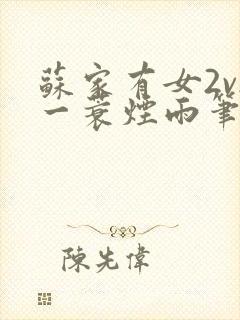 蘇家有女2v
一蓑煙雨筆
陳先偉